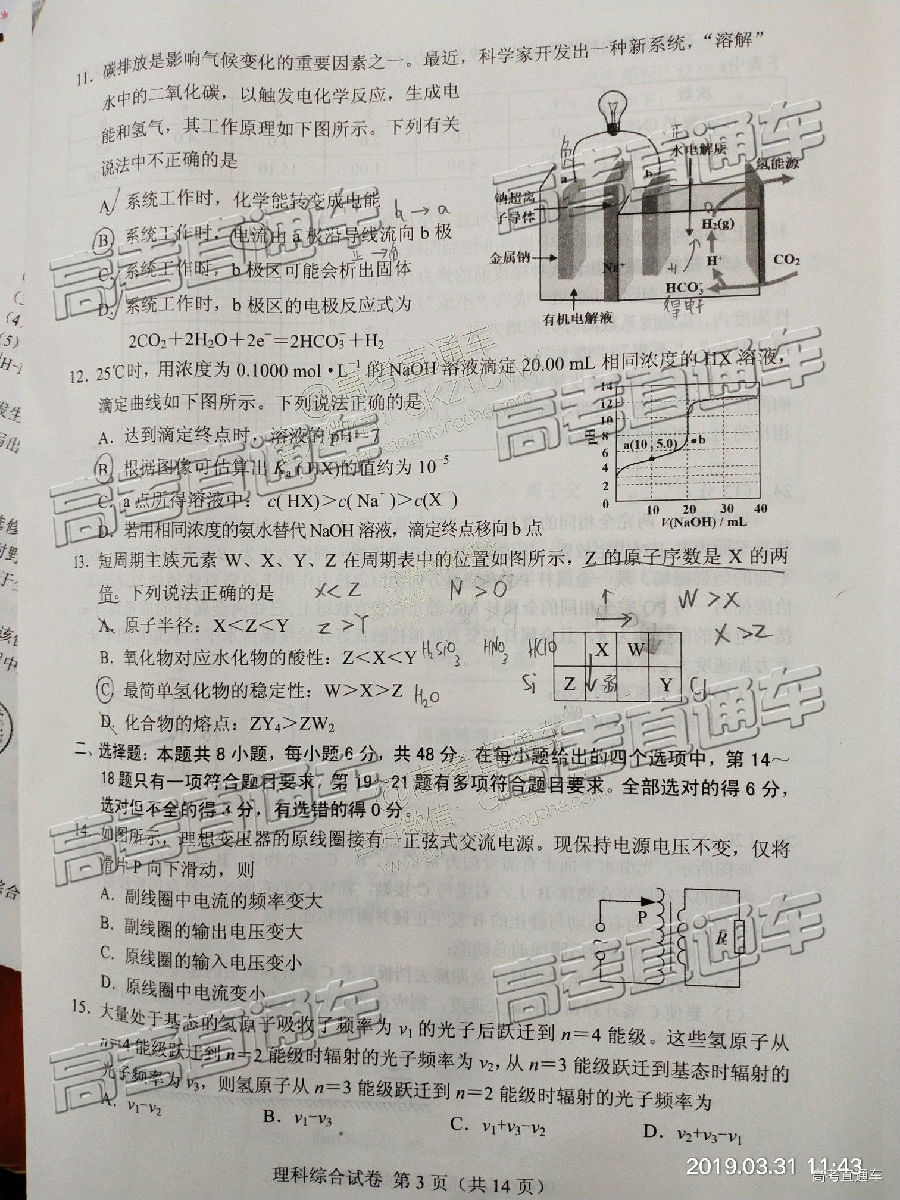 11. 碳排放是影响气候变化的重要因素之一。最近，科学家开发出一种新系统，“溶解”
水中的二氧化碳，以触发电化学反应，生成电
能和氢气，其工作原理如下图所示。下列有关
说法中不正确的是
A. 系统工作时，化学能转变成电能
b → a
B. 系统工作时，电流由 a 极沿导线流向 b 极
正 → 负
C. 系统工作时，b 极区可能会析出固体
D. 系统工作时，b 极区的电极反应式为
2CO₂+2H₂O+2e⁻=2HCO₃⁻+H₂
负
正
a
b
水电解质
氢能源
钠超离
子导体
H₂(g)
金属钠
Na⁺
H⁺
CO₂
HCO₃⁻
有机电解液
得电子
12. 25℃时，用浓度为 0.1000 mol·L⁻¹ 的 NaOH 溶液滴定 20.00 mL 相同浓度的 HX 溶液，
滴定曲线如下图所示。下列说法正确的是
A. 达到滴定终点时，溶液的 pH=7
B. 根据图像可估算出 Ka(HX)的值约为 10⁻⁵
C. a 点所得溶液中：c(HX)>c(Na⁺)>c(X⁻)
D. 若用相同浓度的氨水替代 NaOH 溶液，滴定终点移向 b 点
pH
14
12
10
8
6
4
2
0
a(10, 5.0)
b
10 20 30 40
V(NaOH) / mL
13. 短周期主族元素 W、X、Y、Z 在周期表中的位置如图所示，Z 的原子序数是 X 的两
倍。下列说法正确的是
X<Z
N>O
W>X
A. 原子半径：X<Z<Y
Z>Y
X>Z
B. 氧化物对应水化物的酸性：Z<X<Y
H₂SiO₃ HNO₃ HClO
C. 最简单氢化物的稳定性：W>X>Z
H₂O
D. 化合物的熔点：ZY₄>ZW₂
X W
Si Z Y Cl
弱
二、选择题：本题共 8 小题，每小题 6 分，共 48 分。在每小题给出的四个选项中，第 14～
18 题只有一项符合题目要求，第 19～21 题有多项符合题目要求。全部选对的得 6 分，
选对但不全的得 3 分，有选错的得 0 分。
14. 如图所示，理想变压器的原线圈接有一正弦式交流电源。现保持电源电压不变，仅将
滑片 P 向下滑动，则
A. 副线圈中电流的频率变大
B. 副线圈的输出电压变大
C. 原线圈的输入电压变小
D. 原线圈中电流变小
P
R
15. 大量处于基态的氢原子吸收了频率为 ν₁ 的光子后跃迁到 n=4 能级。这些氢原子从
n=4 能级跃迁到 n=2 能级时辐射的光子频率为 ν₂，从 n=3 能级跃迁到基态时辐射的
光子频率为 ν₃，则氢原子从 n=3 能级跃迁到 n=2 能级时辐射的光子频率为
A. ν₁-ν₂
B. ν₁-ν₃
C. ν₁+ν₃-ν₂
D. ν₂+ν₃-ν₁
理科综合试卷 第 3 页（共 14 页）
2019.03.31 11:43
高考直通车